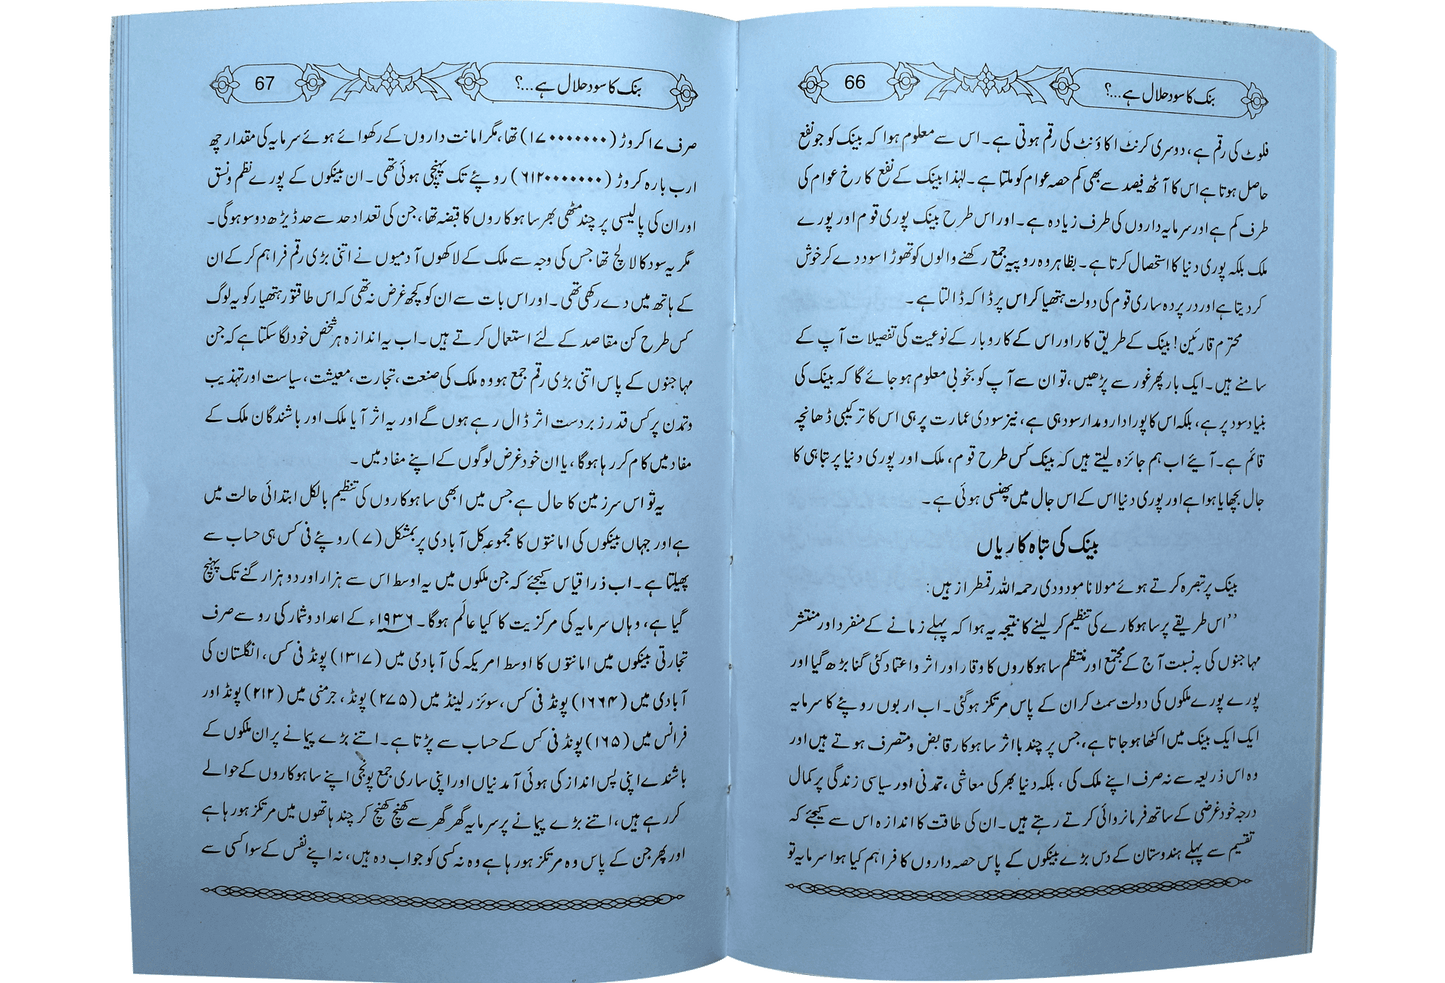 بنک کا سود حلال ہے...؟
66
فلوٹ کی رقم ہے، دوسری کرنٹ اکاؤنٹ کی رقم ہوتی ہے۔ اس سے معلوم ہوا کہ بینک کو جو نفع
حاصل ہوتا ہے اس کا آٹھ فیصد سے بھی کم حصہ عوام کو ملتا ہے۔ لہٰذا بینک کے نفع کا رخ عوام کی
طرف کم ہے اور سرمایہ داروں کی طرف زیادہ ہے۔ اور اس طرح بینک پوری قوم اور پورے
ملک بلکہ پوری دنیا کا استحصال کرتا ہے۔ بظاہر وہ روپیہ جمع رکھنے والوں کو تھوڑا سود دے کر خوش
کر دیتا ہے اور در پردہ ساری قوم کی دولت ہتھیا کر اس پر ڈاکہ ڈالتا ہے۔
محترم قارئین! بینک کے طریق کار اور اس کے کاروبار کے نوعیت کی تفصیلات آپ کے
سامنے ہیں۔ ایک بار پھر غور سے پڑھیں، تو ان سے آپ کو بخوبی معلوم ہو جائے گا کہ بینک کی
بنیاد سود پر ہے، بلکہ اس کا پورا دارومدار سود ہی ہے، نیز سودی عمارت پر ہی اس کا ترکیبی ڈھانچہ
قائم ہے۔ آیئے اب ہم جائزہ لیتے ہیں کہ بینک کس طرح قوم، ملک اور پوری دنیا پر تباہی کا
جال بچھایا ہوا ہے اور پوری دنیا اس کے اس جال میں پھنسی ہوئی ہے۔
بینک کی تباہ کاریاں
بینک پر تبصرہ کرتے ہوئے مولانا مودودی رحمہ اللہ رقمطراز ہیں:
”اس طریقے پر ساہوکارے کی تنظیم کر لینے کا نتیجہ یہ ہوا کہ پہلے زمانے کے منفرد اور منتشر
مہاجنوں کی بہ نسبت آج کے مجتمع اور منتظم ساہوکاروں کا وقار اور اثر و اعتماد کئی گنا بڑھ گیا اور
پورے پورے ملکوں کی دولت سمٹ کر ان کے پاس مرتکز ہوگئی۔ اب اربوں روپئے کا سرمایہ
ایک ایک بینک میں اکٹھا ہو جاتا ہے، جس پر چند با اثر ساہوکار قابض و متصرف ہوتے ہیں اور
وہ اس ذریعہ سے نہ صرف اپنے ملک کی، بلکہ دنیا بھر کی معاشی، تمدنی اور سیاسی زندگی پر کمال
درجہ خود غرضی کے ساتھ فرمانروائی کرتے رہتے ہیں۔ ان کی طاقت کا اندازہ اس سے کیجئے کہ
تقسیم سے پہلے ہندوستان کے دس بڑے بینکوں کے پاس حصہ داروں کا فراہم کیا ہوا سرمایہ تو
بنک کا سود حلال ہے...؟
67
صرف ۱۷ کروڑ (۱۷۰۰۰۰۰۰۰) تھا، مگر امانت داروں کے رکھوائے ہوئے سرمایہ کی مقدار چھ
ارب بارہ کروڑ (۶۱۲۰۰۰۰۰۰۰) روپئے تک پہنچی ہوئی تھی۔ ان بینکوں کے پورے نظم و نسق
اور ان کی پالیسی پر چند مٹھی بھر ساہوکاروں کا قبضہ تھا، جن کی تعداد حد سے حد ڈیڑھ دو سو ہوگی۔
مگر یہ سود کا لالچ تھا جس کی وجہ سے ملک کے لاکھوں آدمیوں نے اتنی بڑی رقم فراہم کر کے ان
کے ہاتھ میں دے رکھی تھی۔ اور اس بات سے ان کو کچھ غرض نہ تھی کہ اس طاقتور ہتھیار کو یہ لوگ
کس طرح کن مقاصد کے لئے استعمال کرتے ہیں۔ اب یہ اندازہ ہر شخص خود لگا سکتا ہے کہ جن
مہاجنوں کے پاس اتنی بڑی رقم جمع ہو وہ ملک کی صنعت، تجارت، معیشت، سیاست اور تہذیب
و تمدن پر کس قدر زبردست اثر ڈال رہے ہوں گے اور یہ اثر آیا ملک اور باشندگان ملک کے
مفاد میں کام کر رہا ہوگا، یا ان خود غرض لوگوں کے اپنے مفاد میں۔
یہ تو اس سرزمین کا حال ہے جس میں ابھی ساہوکاروں کی تنظیم بالکل ابتدائی حالت میں
ہے اور جہاں بینکوں کی امانتوں کا مجموعہ کل آبادی پر بمشکل (۷) روپئے فی کس ہی حساب سے
پھیلتا ہے۔ اب ذرا قیاس کیجئے کہ جن ملکوں میں یہ اوسط اس سے ہزار اور دو ہزار گنے تک پہنچ
گیا ہے، وہاں سرمایہ کی مرکزیت کا کیا عالم ہوگا۔ ۱۹۳۶ء کے اعداد و شمار کی رو سے صرف
تجارتی بینکوں میں امانتوں کا اوسط امریکہ کی آبادی میں (۱۳۱۷) پونڈ فی کس، انگلستان کی
آبادی میں (۱۶۶۴) پونڈ فی کس، سوئزرلینڈ میں (۲۷۵) پونڈ، جرمنی میں (۲۱۲) پونڈ اور
فرانس میں (۱۶۵) پونڈ فی کس کے حساب سے پڑتا ہے۔ اتنے بڑے پیمانے پر ان ملکوں کے
باشندے اپنی پس انداز کی ہوئی آمدنیاں اور اپنی ساری جمع پونجی اپنے ساہوکاروں کے حوالے
کر رہے ہیں، اتنے بڑے پیمانے پر سرمایہ گھر گھر سے کھنچ کھنچ کر چند ہاتھوں میں مرتکز ہو رہا ہے
اور پھر جن کے پاس وہ مرتکز ہو رہا ہے وہ نہ کسی کو جواب دہ ہیں، نہ اپنے نفس کے سوا کسی سے